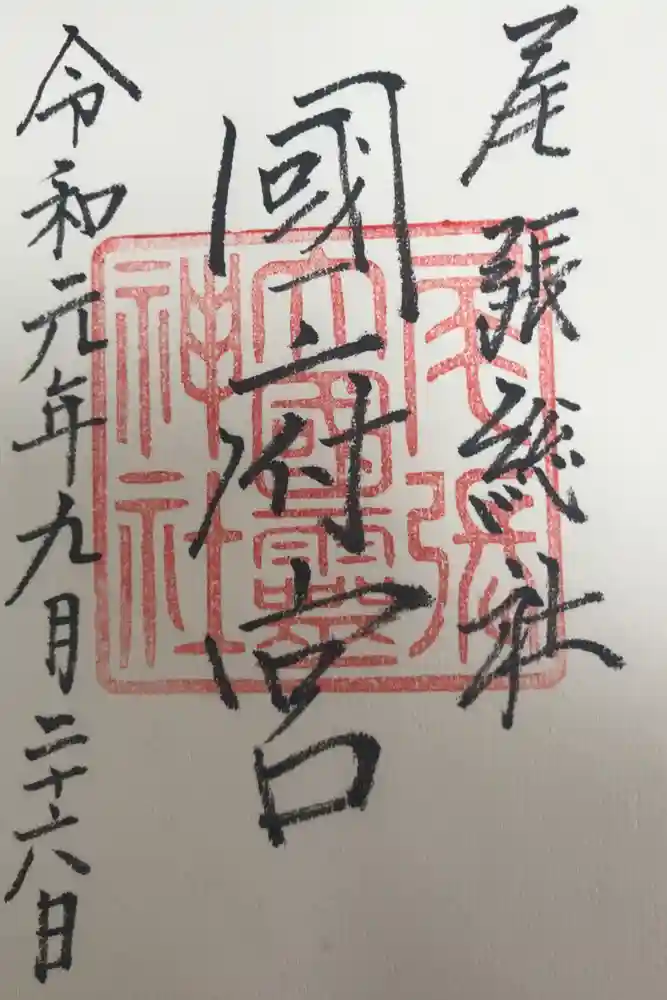 尾張総社
國府宮
令和元年九月二十六日
尾張
大國霊
神社